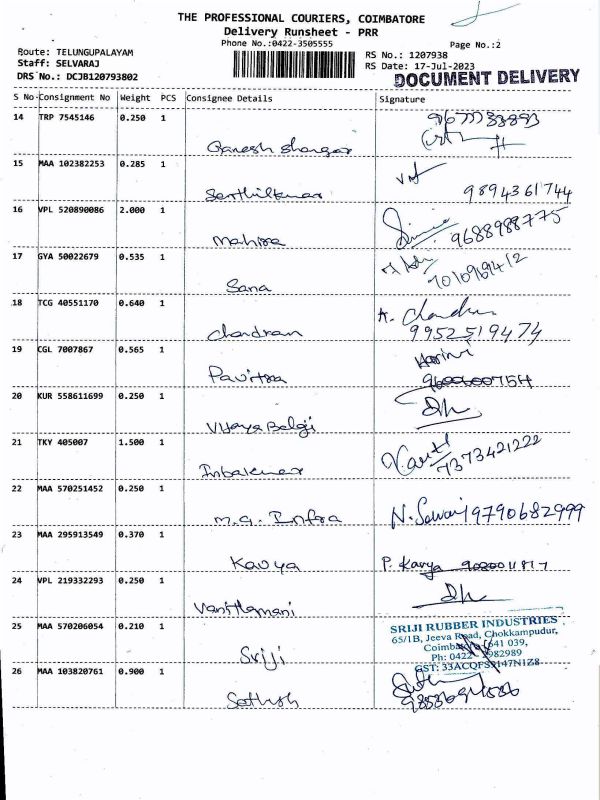 THE PROFESSIONAL COURIERS, COIMBATORE
Delivery Runsheet - PRR
Phone No.:0422-3505555
Page No.:2
Route: TELUNGUPALAYAM
Staff: SELVARAJ
DRS No.: DCJB120793802
RS No.: 1207938
RS Date: 17-Jul-2023
DOCUMENT DELIVERY
S No Consignment No Weight PCS Consignee Details Signature
14 TRP 7545146 0.250 1
Ganesh Shangar
15 MAA 102382253 0.285 1
Senthilkumar 9894361744
16 VPL 520890086 2.000 1
Mahira 9688988775
17 GYA 50022679 0.535 1
Sana
18 TCG 40551170 0.640 1
Chandran A. Chandru
9952519474
19 CGL 7007867 0.565 1
Harini
Pavitra
20 KUR 558611699 0.250 1
Vijaya Balaji
21 TKY 405007 1.500 1
Inbakumar 7373421222
22 MAA 570251452 0.250 1
M.G. Infra N. Selvaraj 9790682999
23 MAA 295913549 0.370 1
Kavya P. Kavya
24 VPL 219332293 0.250 1
Vanithamani
25 MAA 570206054 0.210 1
SRIJI RUBBER INDUSTRIES
65/1B, Jeeva Road, Chokkampudur,
641 039,
Ph: 0422
GST: 33ACQFS3147N1Z8
Sriji
26 MAA 103820761 0.900 1
Sathish